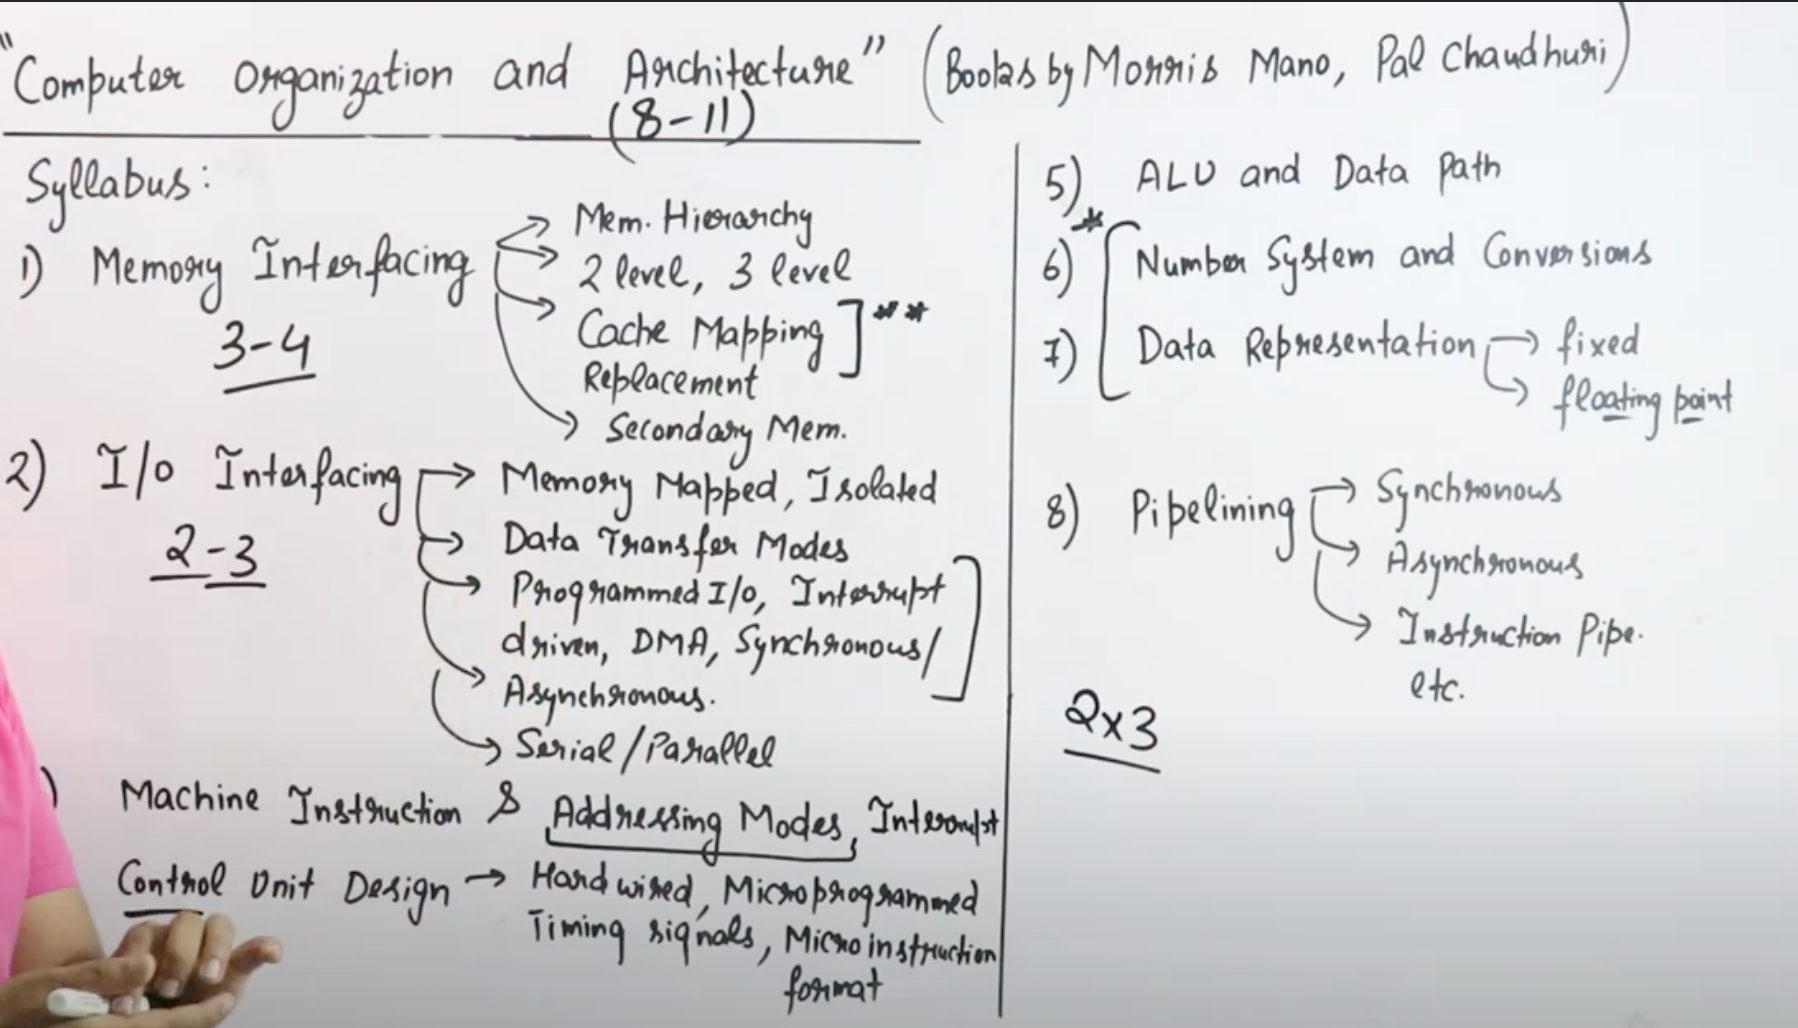 "Computer Organization and Architecture" (Books by Morris Mano, Pal Chaudhuri)
(8-11)
Syllabus:
1) Memory Interfacing
3-4
→ Mem. Hierarchy
→ 2 level, 3 level
→ Cache Mapping ] **
Replacement
→ Secondary Mem.
2) I/O Interfacing
2-3
→ Memory Mapped, Isolated
→ Data Transfer Modes
→ Programmed I/O, Interrupt
driven, DMA, Synchronous/
→ Asynchronous.
→ Serial/Parallel
) Machine Instruction & Addressing Modes, Interrupt
Control Unit Design → Hardwired, Microprogrammed
Timing signals, Microinstruction
format
5) ALU and Data Path
*
6) Number System and Conversions
7) Data Representation → fixed
→ floating point
8) Pipelining → Synchronous
→ Asynchronous
→ Instruction Pipe.
etc.
2x3